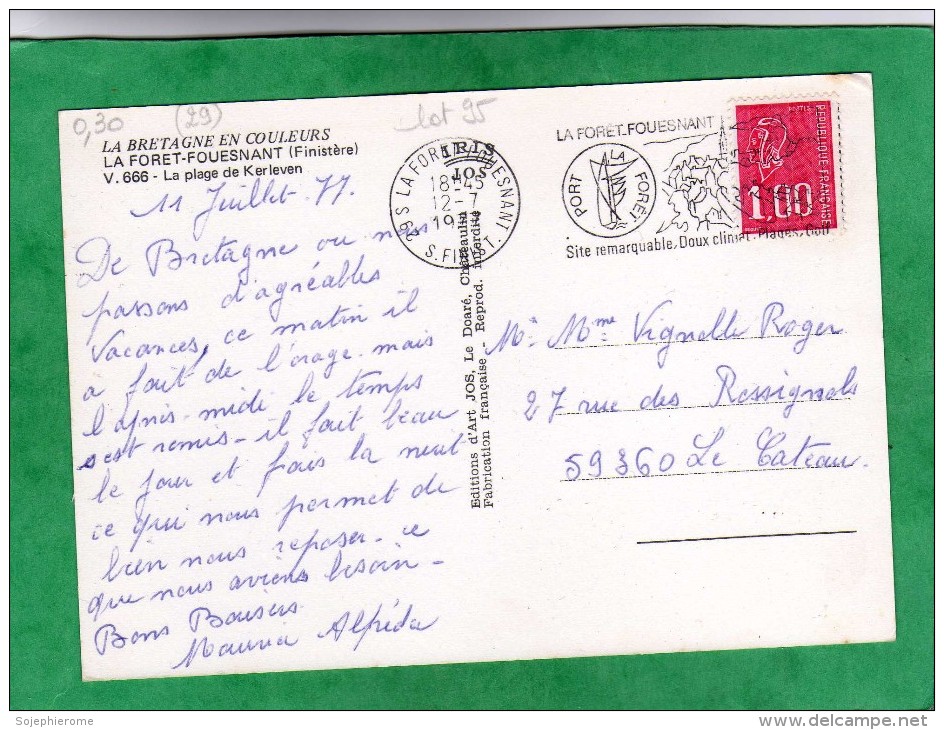 0,30 (29) lot 95
LA BRETAGNE EN COULEURS
LA FORET-FOUESNANT (Finistère)
V. 666 - La plage de Kerleven
11 Juillet. 77.
De Bretagne ou nous
passons d'agréables
vacances, ce matin il
a fait de l'orage. mais
l'après-midi le temps
s'est remis - il fait beau
le jour et frais la nuit
ce qui nous permet de
bien nous reposer - ce
que nous avions besoin -
Bons Baisers
Alfréda
IRIS
JOS
29 S LA FORET FOUESNANT
18 H 45
12 - 7
S. FINIST.
Editions d'Art JOS, Le Doaré, Châteaulin
Fabrication française - Reprod. interdite
LA FORET-FOUESNANT
PORT LA FORÊT
Site remarquable, Doux climat, Plages, Golf
REPUBLIQUE FRANÇAISE
POSTES
1,00
Mr Mme Vignelle Roger
27 rue des Rossignols
59360 Le Cateau.
Sojephierome
delcampe.net